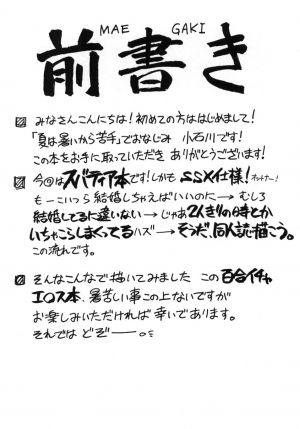 MAE GAKI
前書き
みなさんこんにちは！初めての方ははじめまして！
「夏は暑いから苦手」でおなじみ 小石川です！
この本をお手に取っていただき ありがとうございます！
今回はスバティア本です！しかも SSX仕様！
もーこいつら結婚しちゃえばいいのに→むしろ
結婚してるに違いない→じゃあ2人きりの時とか
いちゃこらしまくってるハズ→そうだ、同人誌描こう。
この流れです。
そんなこんなで描いてみました この百合イチャ
エロス本、暑苦しい事この上ないですが
お楽しみいただければ 幸いであります。
それでは どぞ――。